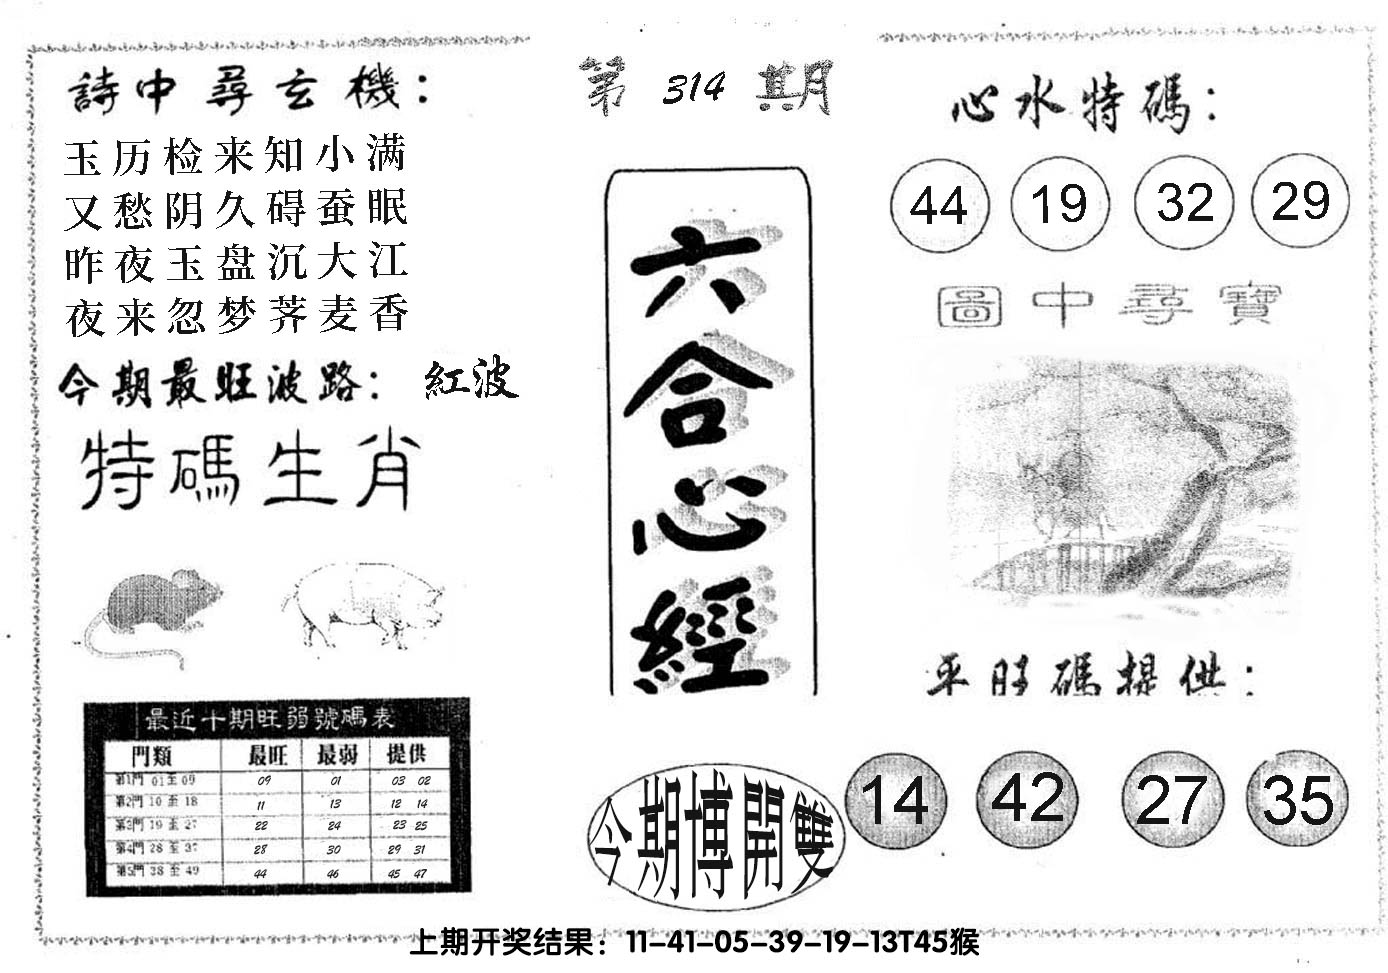 第 314 期
詩中尋玄機：
玉历检来知小满
又愁阴久碍蚕眠
昨夜玉盘沉大江
夜来忽梦荠麦香
今期最旺波路： 紅波
特碼生肖
最近十期旺弱號碼表
門類 最旺 最弱 提供
第1門 01至09 09 01 03 02
第2門 10至18 11 13 12 14
第3門 19至27 22 24 23 25
第4門 28至37 28 30 29 31
第5門 38至49 44 46 45 47
六合心經
今期博開雙
心水特碼：
44 19 32 29
圖中尋寶
平旺碼提供：
14 42 27 35
上期开奖结果：11-41-05-39-19-13T45猴